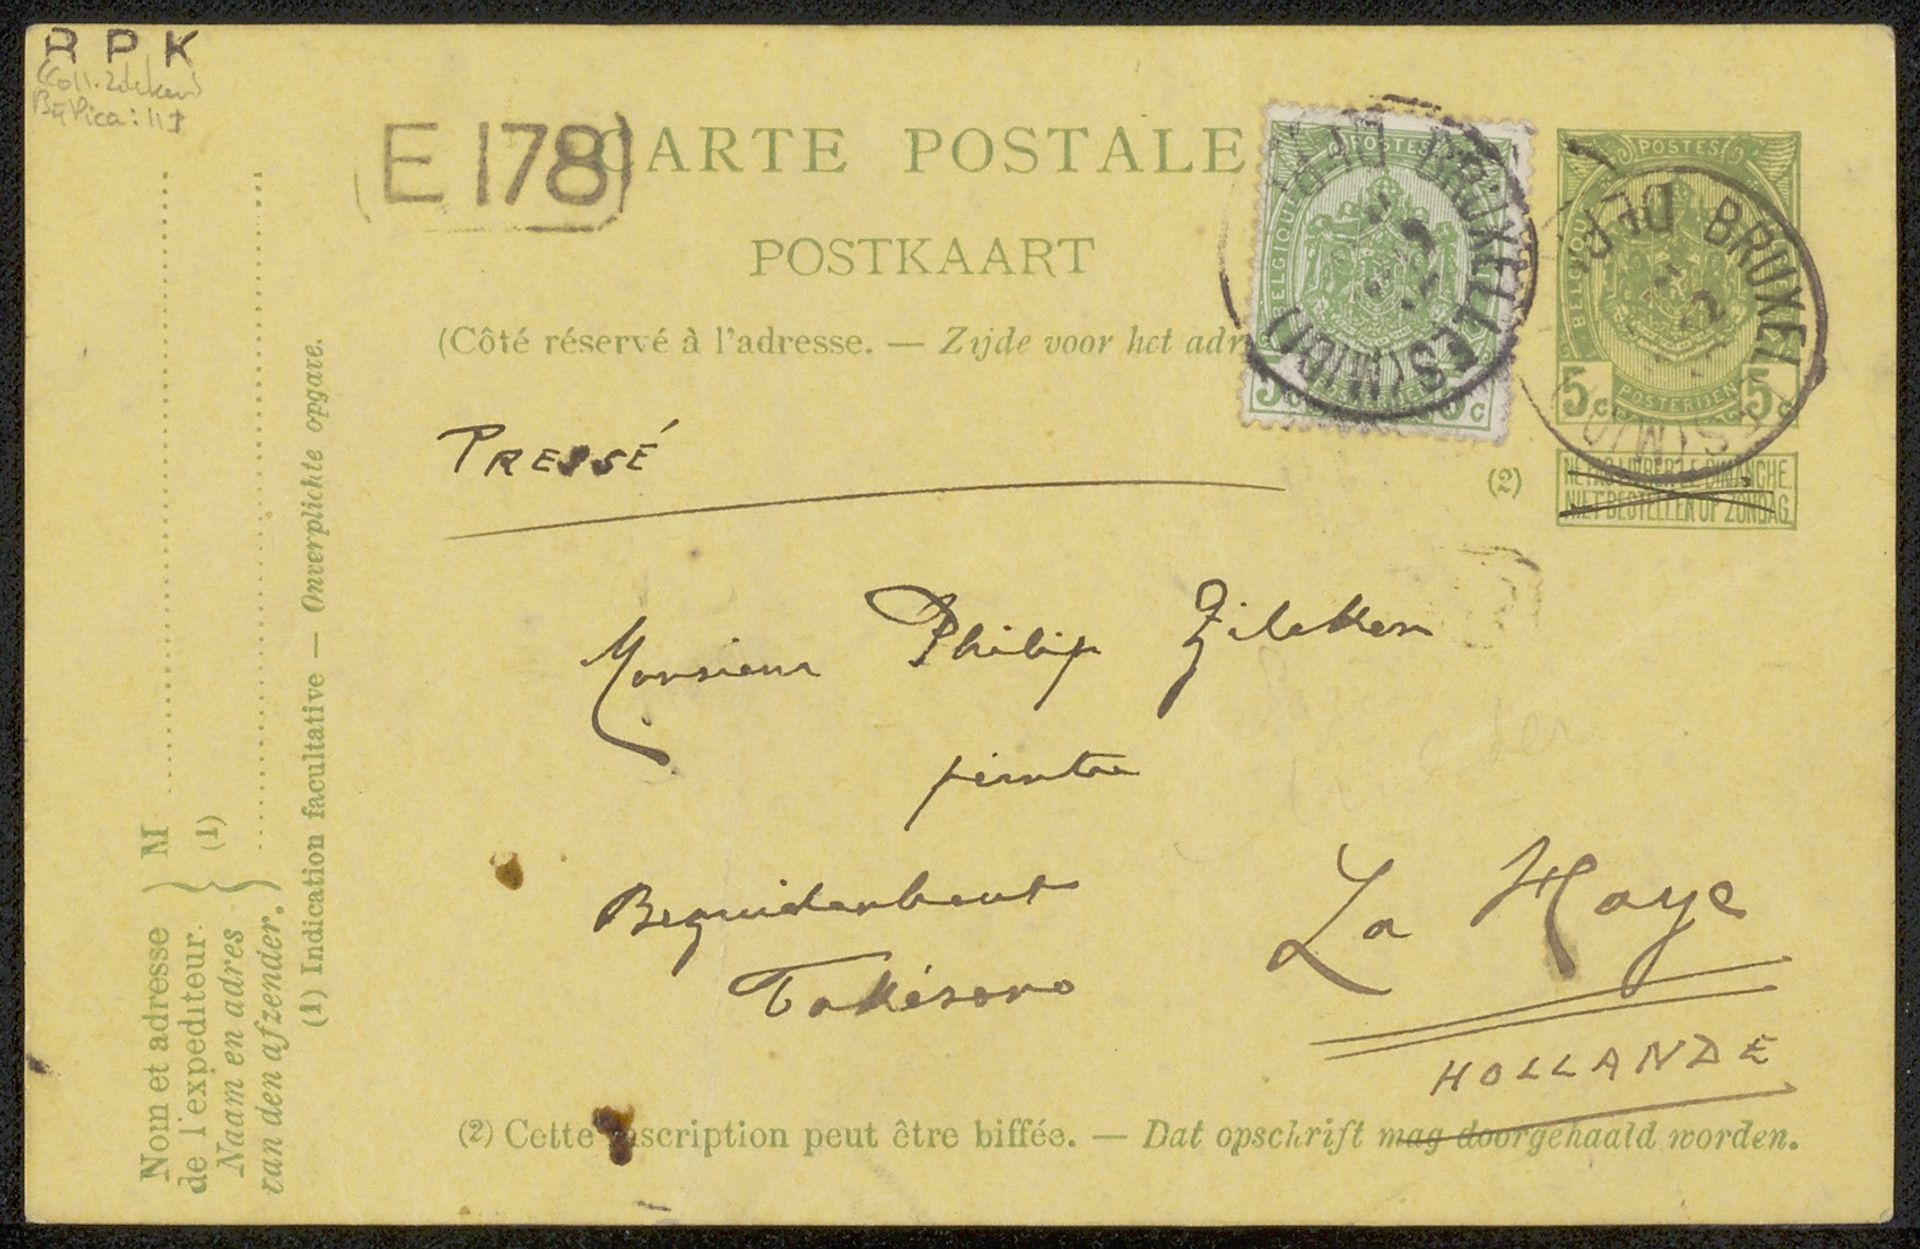 R P K
E 178
CARTE POSTALE
POSTKAART
(Côté réservé à l'adresse. — Zijde voor het adr
POSTES
BELGIQUE
5 c 5 c
BRUXELLES (MIDI)
POSTES
BELGIQUE
POSTERIJEN
5 c 5 c
BRUXEL
(2)
NE PAS LIVRER LE DIMANCHE.
NIET BESTELLEN OP ZONDAG.
PRESSÉ
Monsieur Philip Zilcken
peintre
Bezuidenhout
La Haye
HOLLANDE
(2) Cette inscription peut être biffée. — Dat opschrift mag doorgehaald worden.
Nom et adresse } M
de l'expediteur. } (1)
Naam en adres
van den afzender.
(1) Indication facultative — Onverplichte opgave.